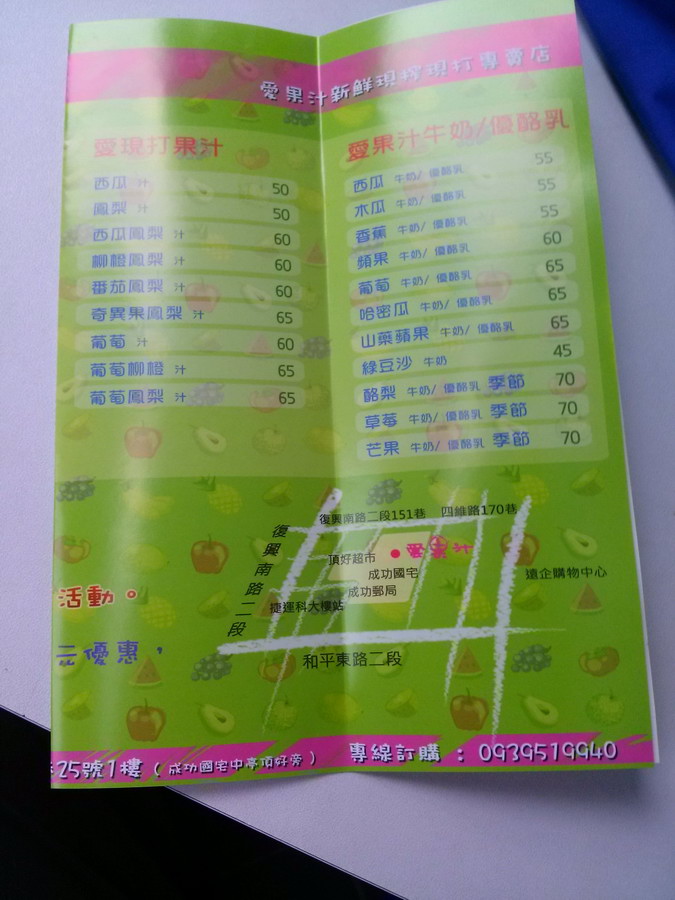 愛果汁新鮮現榨現打專賣店
愛現打果汁
西瓜 汁 50
鳳梨 汁 50
西瓜鳳梨 汁 60
柳橙鳳梨 汁 60
番茄鳳梨 汁 60
奇異果鳳梨 汁 65
葡萄 汁 60
葡萄柳橙 汁 65
葡萄鳳梨 汁 65
愛果汁牛奶/優酪乳
西瓜 牛奶/優酪乳 55
木瓜 牛奶/優酪乳 55
香蕉 牛奶/優酪乳 55
蘋果 牛奶/優酪乳 60
葡萄 牛奶/優酪乳 65
哈密瓜 牛奶/優酪乳 65
山藥蘋果 牛奶/優酪乳 65
綠豆沙 牛奶 45
酪梨 牛奶/優酪乳 季節 70
草莓 牛奶/優酪乳 季節 70
芒果 牛奶/優酪乳 季節 70
復興南路二段151巷 四維路170巷
復興南路二段
頂好超市 愛果汁
成功國宅
成功郵局
捷運科大樓站
遠企購物中心
和平東路二段
活動。
元優惠，
25號1樓（成功國宅中亭頂好旁） 專線訂購：0939519940